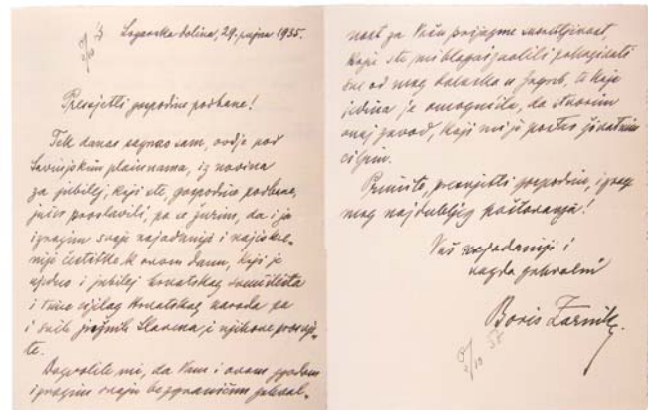 Logarska dolina, 29. rujna 1935.
Presvijetli gospodine podbane!
Tek danas saznao sam, ovdje pod
Savinjskim planinama, iz novina
za jubilej, koji ste, gospodine podbane,
jučer proslavili, pa se žurim, da i ja
izrazim svoje najodanije i najiskre-
nije čestitke k ovom danu, koji je
ujedno i jubilej hrvatskog sveučilišta
i time cijelog hrvatskog naroda pa
i svih južnih Slavena i njihove prosvje-
te.
Dozvolite mi, da Vam i ovom zgodom
izrazim svoju bezgraničnu zahval-
nost za Vašu prijaznu susretljivost,
koju ste mi blagoizvolili pokazivati
sve od mog dolaska u Zagreb, a koja
jedina je omogućila, da stvorim
onaj zavod, koji mi je postao životnim
ciljem.
Primite, presvijetli gospodine, izraz
mog najdubljeg poštovanja!
Vaš najodaniji i
vazda zahvalni
Boris Zarnik.